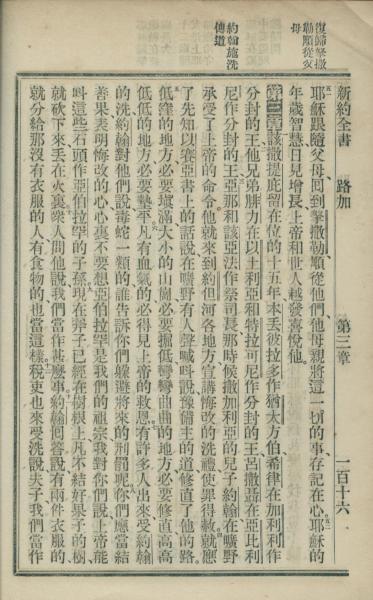 新約全書 路加 第三章 一百十六
復歸拏撒
勒順從父
母
約翰施洗
傳道
耶穌跟隨父母回到拏撒勒順從他們他母親將這一切的事存記在心耶穌的
年歲智慧日見增長上帝和世人越發喜悅他
第三章該撒提庇留在位的十五年本丟彼拉多作猶太方伯希律在加利利作
分封的王他兄弟腓力在以土利亞和特拉可尼作分封的王呂撒聶在亞比利
尼作分封的王亞那和該亞法作祭司長那時候撒加利亞的兒子約翰在曠野
承受了上帝的命令他就來到約但河各地方宣講悔改的洗禮使罪得赦就應
了先知以賽亞書上的話說在曠野有人聲喊呌說豫備主的道修直了他的路
低窪的地方必要塡滿大小的山崗必要掘低彎彎曲曲的地方必要修直高高
低低的地方必要墊平凡有血氣的必得見上帝的救恩有許多人出來受約翰
的洗約翰對他們說毒蛇一類的誰告訴你們躱避將來的刑罰呢你們應當結
善果表明悔改的心心裏不要想亞伯拉罕是我們的祖宗我對你們說上帝能
呌這些石頭作亞伯拉罕的子孫現在斧子已經在樹根上凡不結好果子的樹
就砍下來丟在火裏衆人問他說我們當作甚麼事約翰囘答說有兩件衣服的
就分給那沒有衣服的人有食物的也當這樣稅吏也來受洗說夫子我們當作